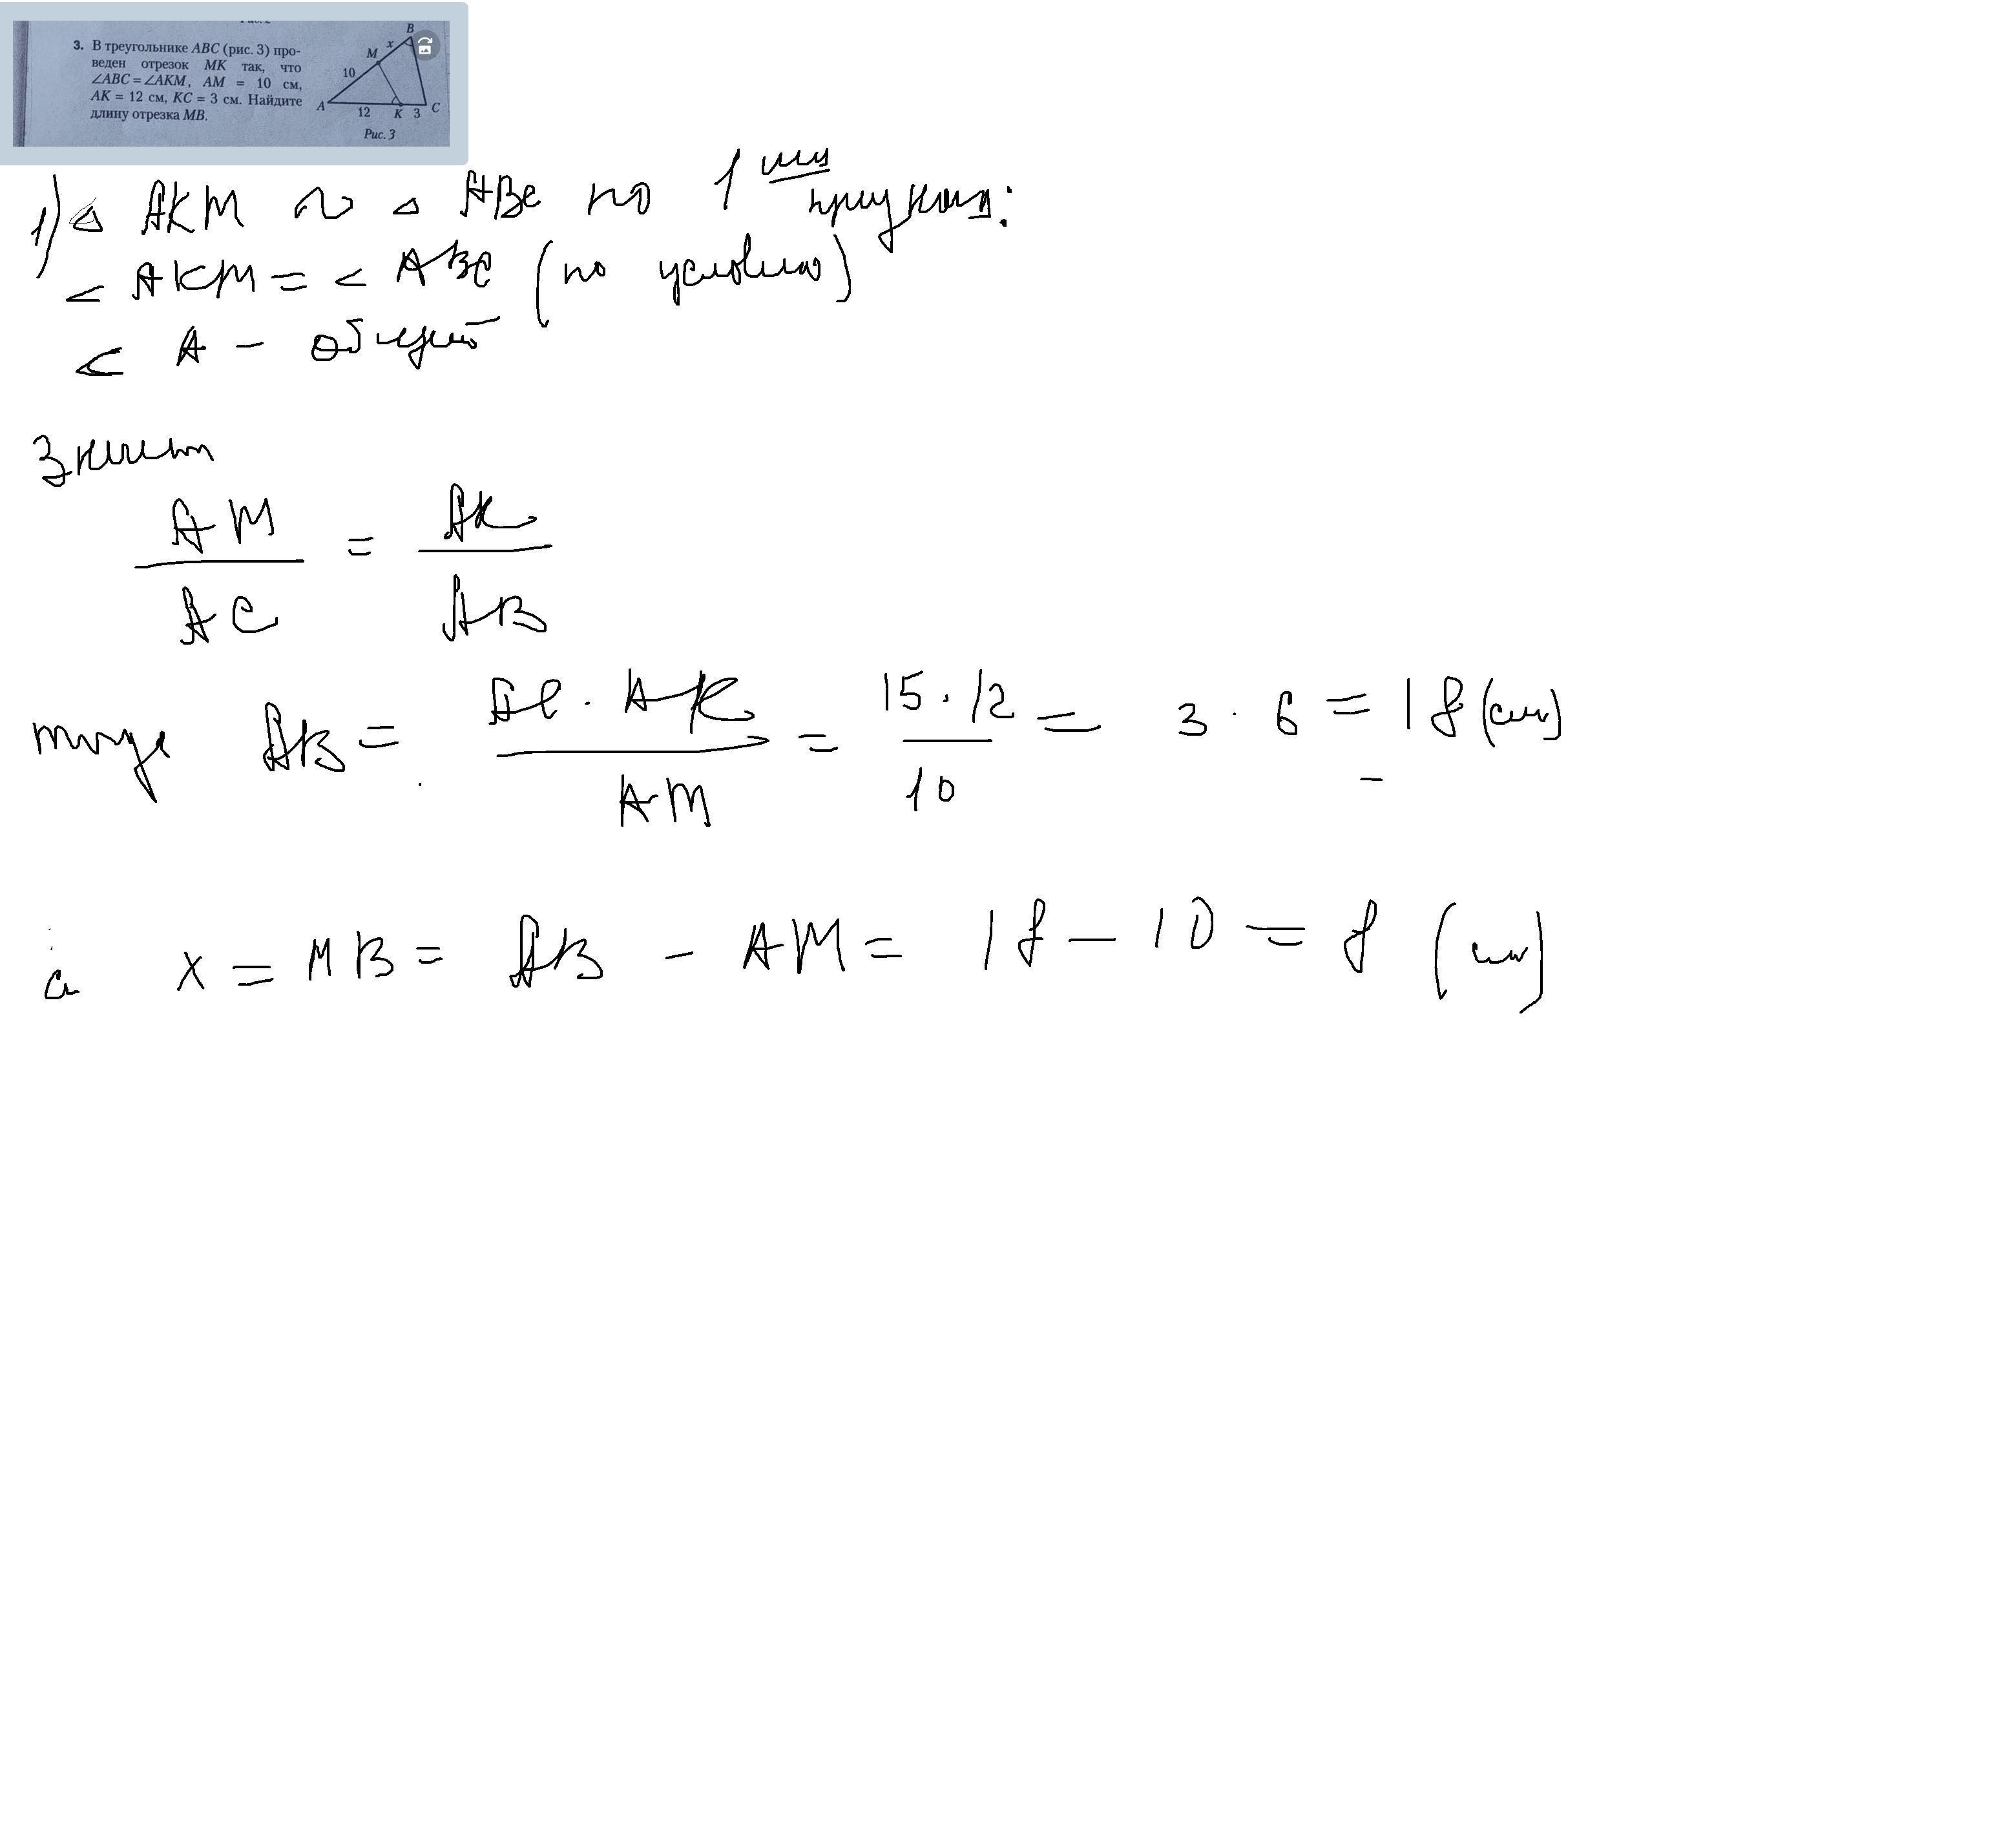 3. В треугольнике ABC (рис. 3) про-
веден отрезок MK так, что
∠ABC = ∠AKM, AM = 10 см,
AK = 12 см, KC = 3 см. Найдите
длину отрезка MB.
B
x
M
10
A
12 K 3 C
Рис. 3
1) △ AKM ∾ △ ABC по 1 ому признаку:
< AKM = < ABC (по условию)
< A - общий
Значит
AM / AC = AK / AB
тогда AB = AC · AK / AM = 15 · 12 / 10 = 3 · 6 = 18 (см)
а x = MB = AB - AM = 18 - 10 = 8 (см)